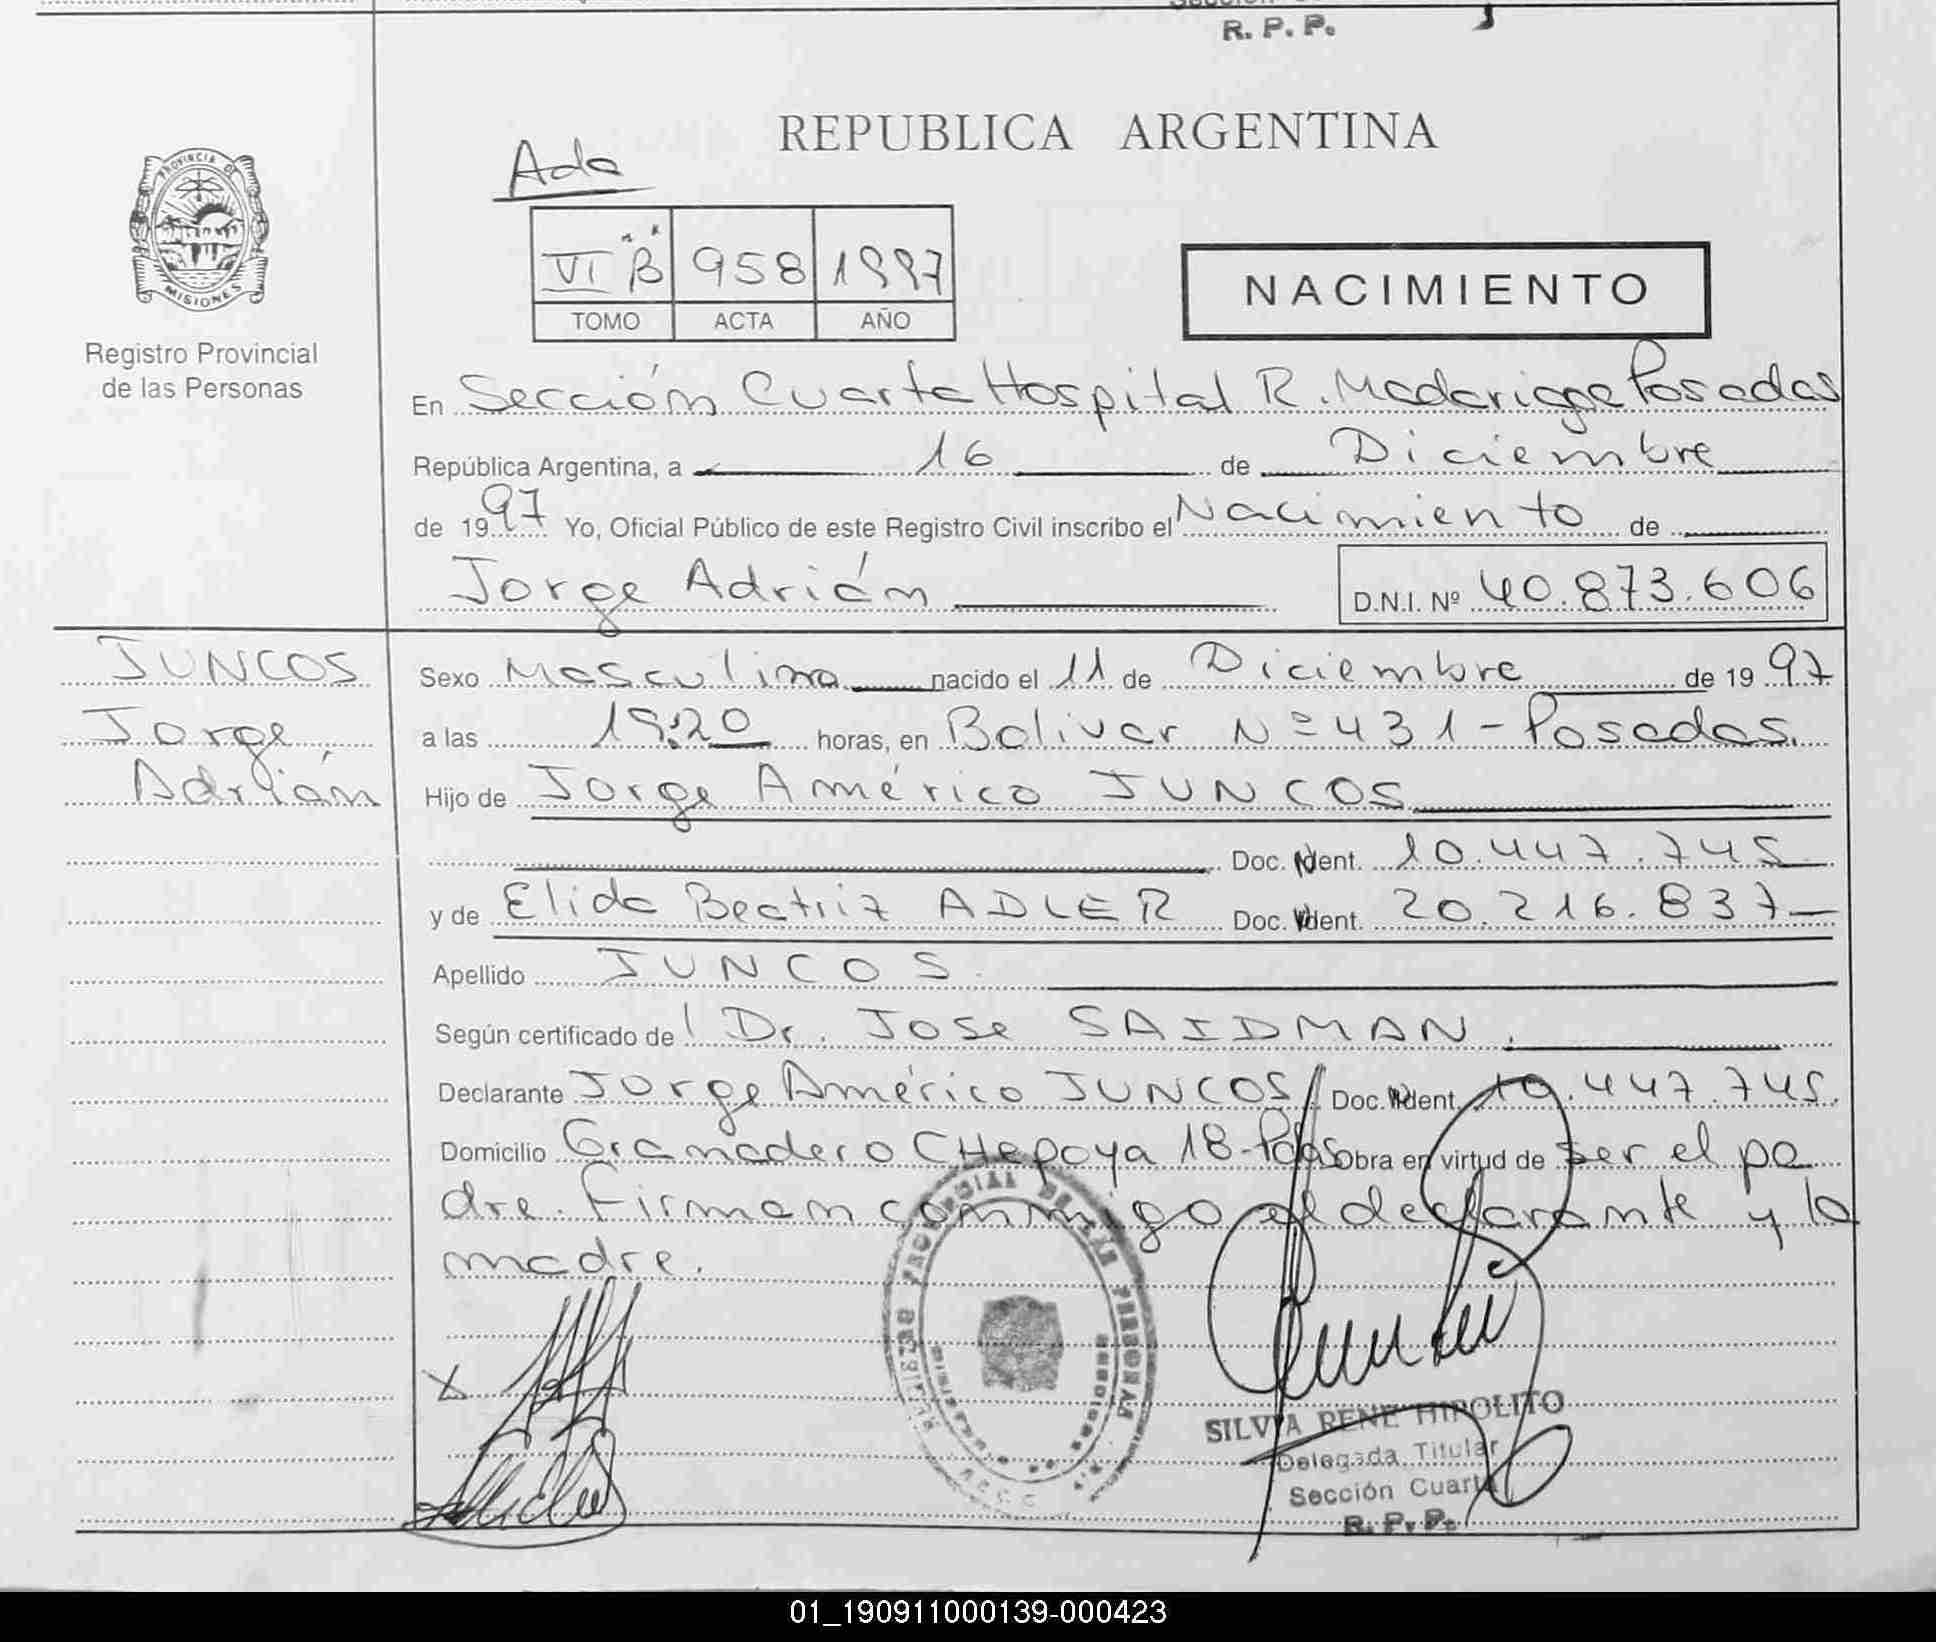 R. P. P.
PROVINCIA DE
MISIONES
Registro Provincial
de las Personas
REPUBLICA ARGENTINA
Ada
VI "B" 958 1997
TOMO ACTA AÑO
NACIMIENTO
En Sección Cuarta Hospital R. Madariaga Posadas
República Argentina, a 16 de Diciembre
de 1997 Yo, Oficial Público de este Registro Civil inscribo el Nacimiento de
Jorge Adrián D.N.I. Nº 40.873.606
JUNCOS
Jorge
Adrián
Sexo Masculino nacido el 11 de Diciembre de 1997
a las 19:20 horas, en Bolivar Nº 431 - Posadas.
Hijo de Jorge Américo JUNCOS
Doc. Ident. 10.447.745
y de Elida Beatriz ADLER Doc. Ident. 20.216.837
Apellido JUNCOS.
Según certificado del Dr. Jose SAIDMAN.
Declarante Jorge Américo JUNCOS Doc. Ident. 10.447.745.
Domicilio Granadero CHepoya 18-Pdas Obra en virtud de ser el pa
dre. Firman conmigo el declarante y la
madre.
X
REGISTRO PROVINCIAL DE LAS PERSONAS
SILVIA RENE HIPOLITO
Delegada Titular
Sección Cuarta
R. P. P.
01_190911000139-000423